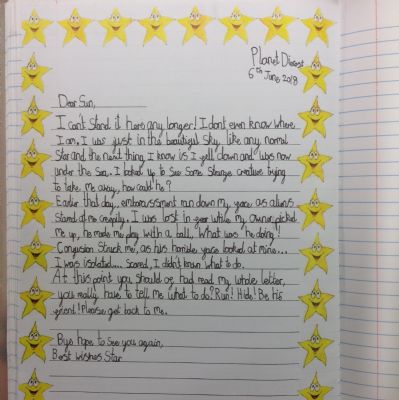 Planet Disgust
6th June 2018
Dear Sun,
I can't Stand it here any longer! I dont even know where
I am. I was just in the beautiful Sky, like any normal
Star and the next thing I know is I fell down and was now
under the Sea. I looked up to See Some Strange creature trying
to take me away, how could he?
Earlier that day, embarrassment ran down my face as aliens
Stared at me creepily. I was lost in fear while my owner picked
me up, he made me play with a ball. What was he doing!
Confusion Struck me, as his horrible face looked at mine...
I was isolated.... Scared, I didn't known what to do.
At this point you should of had read my whole letter,
you really have to tell me what to do? Run! Hide! Be his
friend! Please get back to me.
Bye hope to see you again,
Best Wishes Star